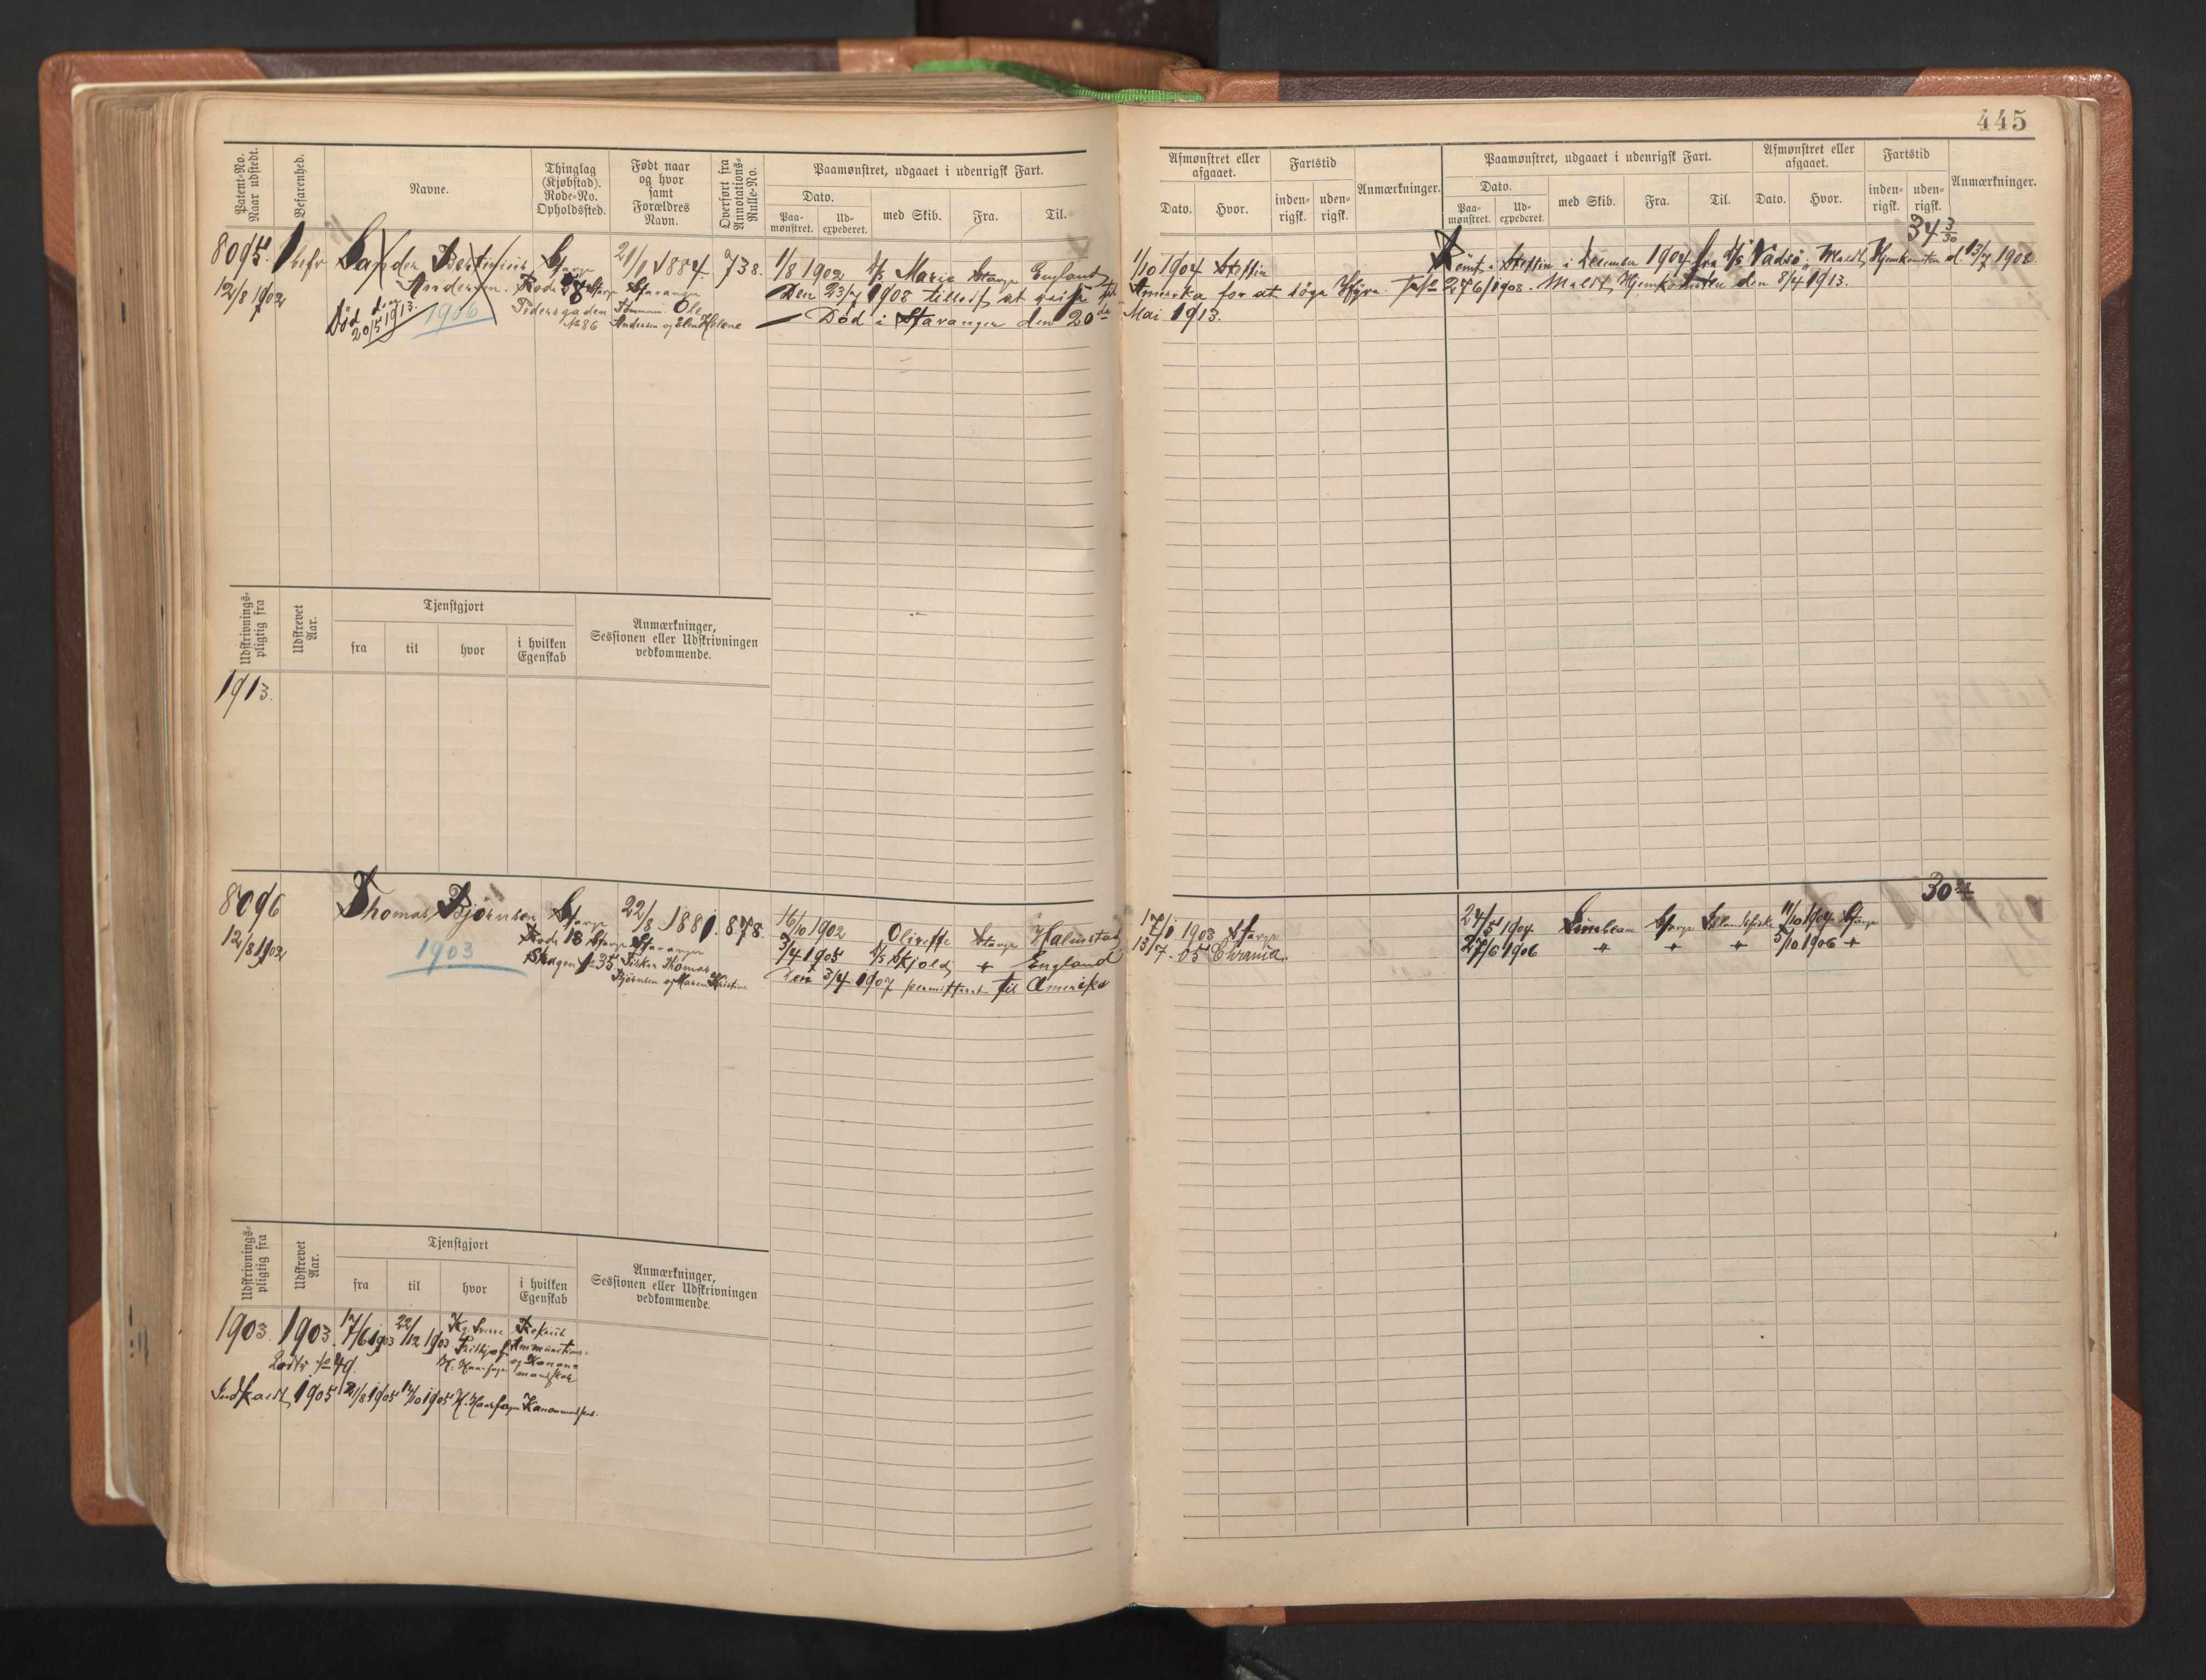 445
Patent-No. Naar udstedt.
Befarenhed.
Navne.
Thinglag (Kjøbstad). Rode-No. Opholdssted.
Født naar og hvor samt Forældres Navn.
Overført fra Annotations-Rulle-No.
Paamønstret, udgaaet i udenrigsk Fart.
Dato.
Paa-mønstret.
Ud-expederet.
med Skib.
Fra.
Til.
Afmønstret eller afgaaet.
Dato.
Hvor.
Fartstid
inden-rigsk.
uden-rigsk.
Anmærkninger.
Paamønstret, udgaaet i udenrigsk Fart.
Dato.
Paa-mønstret.
Ud-expederet.
med Skib.
Fra.
Til.
Afmønstret eller afgaaet.
Dato.
Hvor.
Fartstid
inden-rigsk.
uden-rigsk.
Anmærkninger.
34 3/30
8095.
12/8 1902
Andersen.
Død den 20/5 1913.
1906
Stavanger
Pedersgaden No 86
21/1 1884.
Stavanger
Tømmerm. Ole Andersen og Helene
738.
1/8 1902 D/S Marie Stavgr England
Den 23/7 1908 tilladt at reise til Amerika for at søge Hyre.
Død i Stavanger den 20de Mai 1913.
1/10 1904 Stettin
Rømt i Stettin i December 1904 fra D/S Vadsø. Meldt Hjemkomsten d. 13/7 1908
276/1908. Meldt Hjemkomsten den 8/4 1913.
Udskrivnings-pligtig fra
Udskrevet Aar.
Tjenstgjort
fra
til
hvor
i hvilken Egenskab
Anmærkninger, Sessionen eller Udskrivningen vedkommende.
1913.
8096
12/8 1902
Thomas Bjørnsen
1903
Stavgr
Rode 18 Stavgr
Skagen No 35
22/8 1881.
Stavanger
Fisker Thomas Bjørnsen og Maren Kristine
878.
16/10 1902 Olivette Stavgr Halmstad
3/4 1905 D/S Skjold + England
Den 3/4 1907 permitteret til Amerika
17/1 1903 Stavgr
13/7 - 05 Chrania.
24/5 1904
Stavgr
11/10 1904 Stavgr
27/6 1906 " + + 5/10 1906 +
30
Udskrivnings-pligtig fra
Udskrevet Aar.
Tjenstgjort
fra
til
hvor
i hvilken Egenskab
Anmærkninger, Sessionen eller Udskrivningen vedkommende.
1903
1903.
17/6 1903
22/12 1903
Kg Sverre
Frithjof
H. Haarfagre
Rekrut
Ammunitions- og Kanonmandskab
Indkaldt 1905 21/8 1905 17/10 1905 H. Haarfagre Kanonmandskab.